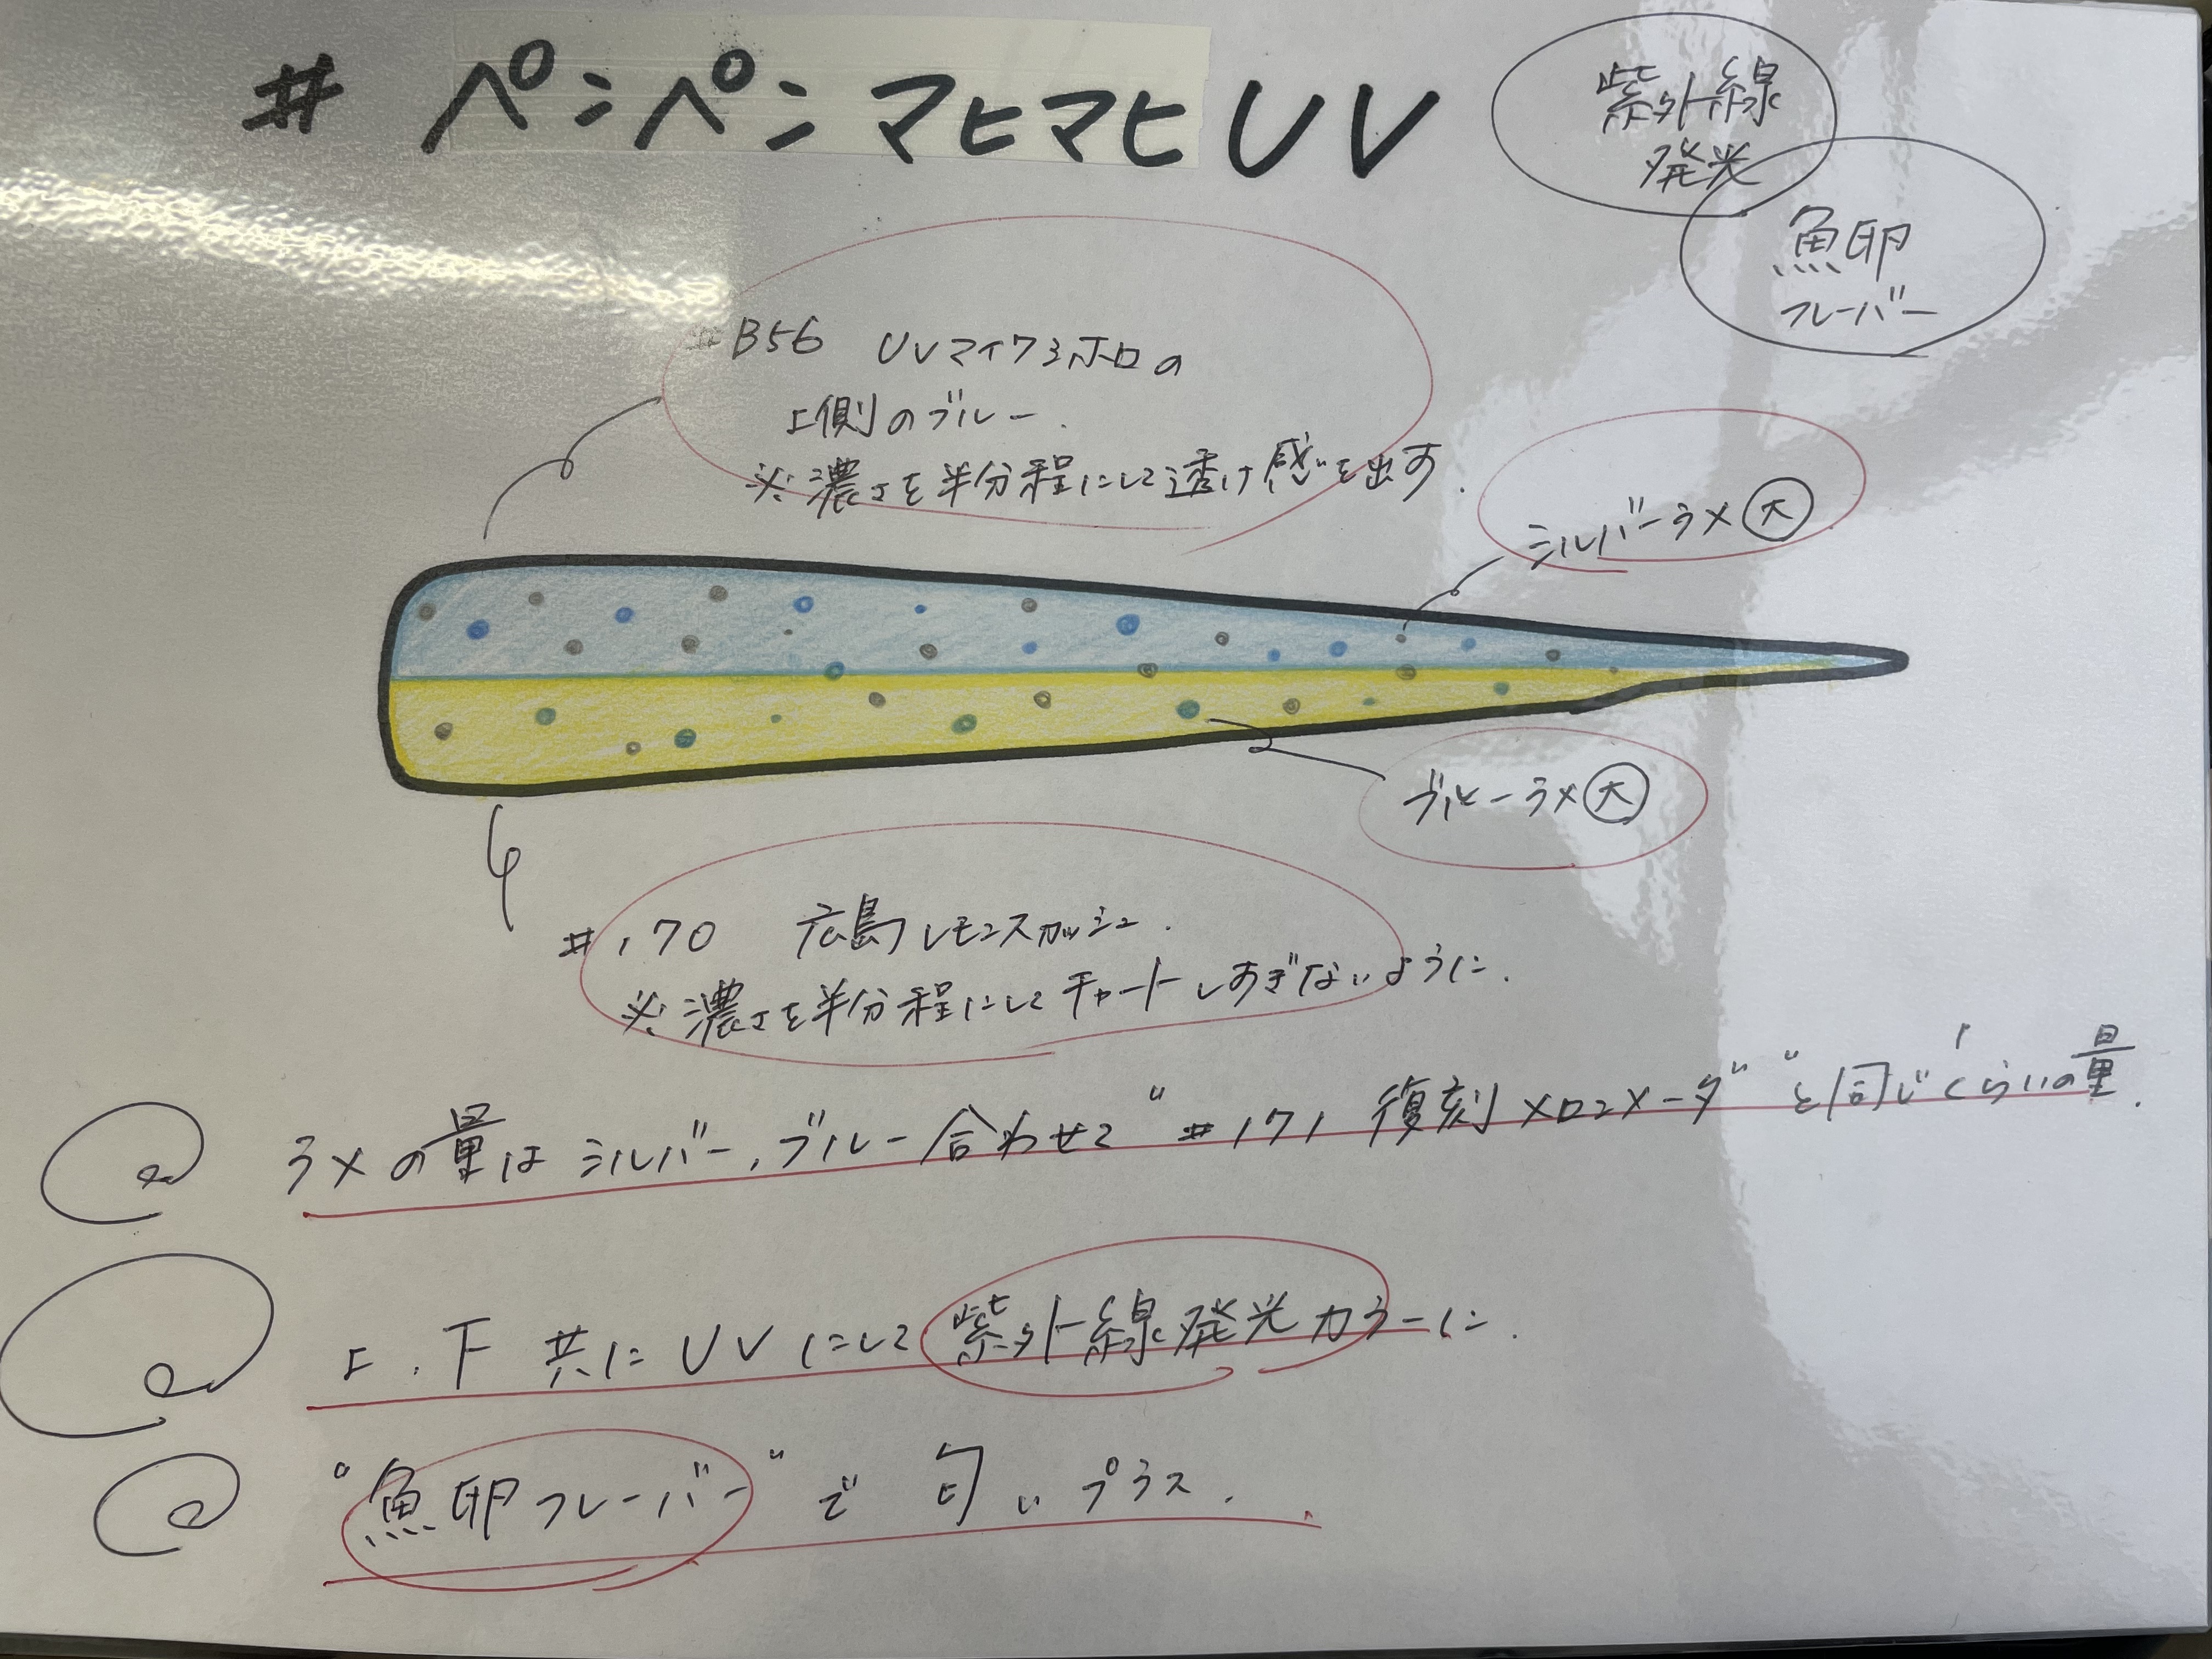 # ペンペンマヒマヒUV
紫外線
発光
魚卵
フレーバー
#B56 UVマイクロホロの
上側のブルー.
※濃さを半分程にして透け感を出す.
シルバーラメ大
ブルーラメ大
#170 広島レモンスカッシュ.
※濃さを半分程にしてチャートしすぎないように.
ラメの量はシルバー、ブルー合わせて"#171 復刻メロンメーダ"と同じくらいの量.
上、下共にUVにして紫外線発光カラーに.
"魚卵フレーバー"で匂いプラス.